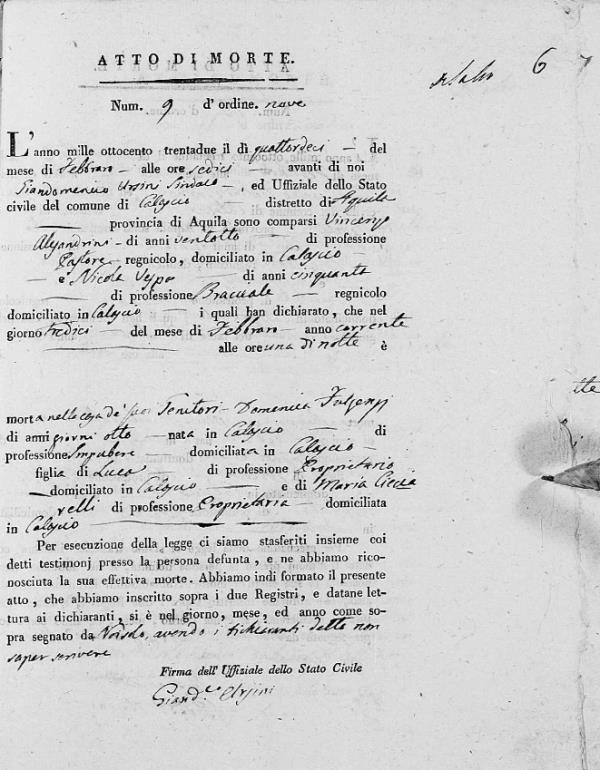 6
ATTO DI MORTE.
Num. 9 d'ordine. nove
L'anno mille ottocento trentadue il dì quattordeci — del
mese di Febbraro — alle ore sedici — avanti di noi
Giandomenico Ursini Sindaco —, ed Uffiziale dello Stato
civile del comune di Calascio — distretto di Aquila
— provincia di Aquila sono comparsi Vincenzo
Alejandrini — di anni ventotto — di professione
Pastore — regnicolo, domiciliato in Calascio —
— e Nicola Vespa — di anni cinquanta
— di professione Bracciale — regnicolo
domiciliato in Calascio — i quali han dichiarato, che nel
giorno tredici — del mese di Febbraro — anno corrente
— alle ore una di notte è
ite
morta nella casa de' suoi Genitori — Domenica Fulgenzj
di anni giorni otto — nata in Calascio — di
professione Impubere — domiciliata in Calascio —
figlia di Luca — di professione Proprietario
— domiciliato in Calascio — e di Maria Ciccia
relli di professione Proprietaria — domiciliata
in Calascio —
Per esecuzione della legge ci siamo stasferiti insieme coi
detti testimonj presso la persona defunta, e ne abbiamo rico-
nosciuta la sua effettiva morte. Abbiamo indi formato il presente
atto, che abbiamo inscritto sopra i due Registri, e datane let-
tura ai dichiaranti, si è nel giorno, mese, ed anno come so-
pra segnato da Noi solo, avendo i dichiaranti detto non
saper scrivere
Firma dell'Uffiziale dello Stato Civile
Giand.co Ursini